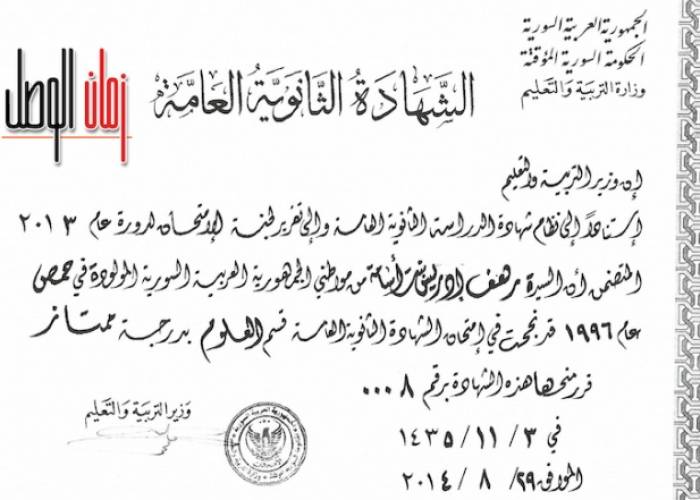 الجمهورية العربية السورية
الحكومة السورية المؤقتة
وزارة التربية والتعليم
زمان الوصل
الشَّهَادَةُ الثَّانَوِيَّةُ العَامَّةُ
إن وزير التربية والتعليم
إستناداً إلى نظام شهادة الدراسة الثانوية العامة وإلى تقرير لجنة الإمتحان لدورة عام ٢٠١٣
المتضمن أن السيدة رهف إدريس من مواطني الجمهورية العربية السورية المولودة في حمص
عام ١٩٩٦ قد نجحت في إمتحان الشهادة الثانوية العامة قسم العلوم بدرجة ممتاز
قرر منحها هذه الشهادة برقم ٠٠٠٨
في ٣ / ١١ / ١٤٣٥
الموافق ٢٩ / ٨ / ٢٠١٤
وزير التربية والتعليم